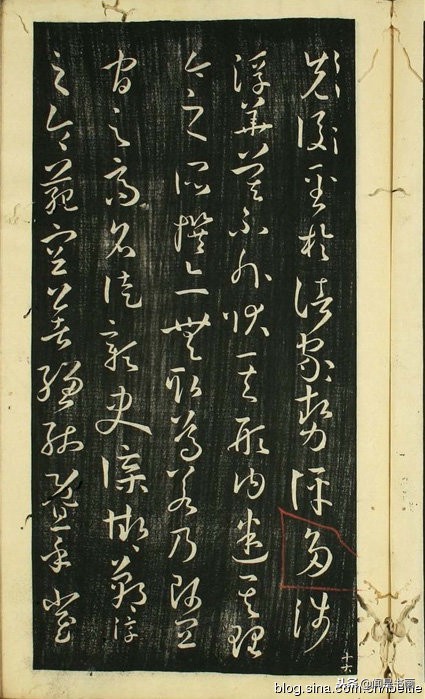 至於諸家勢評多涉
浮華莫不外狀其形內迷其理
今之所撰亦無取焉若乃師宜
官之高名徒彰史牒邯鄲淳
之令範空著縑緗暨乎崔
十六
头条@闻是书雨
blog.sina.com.cn/beitie